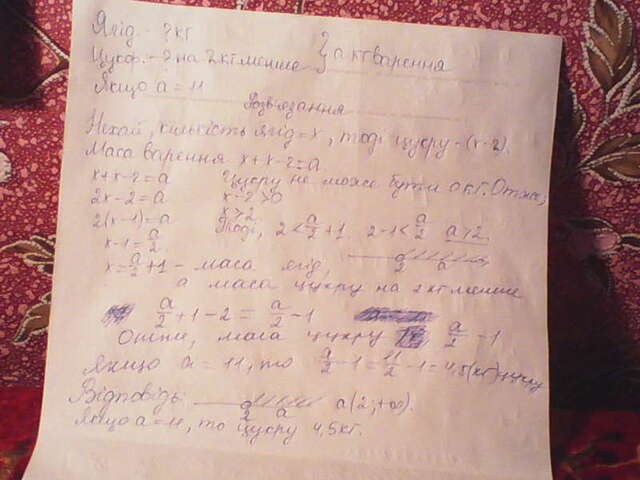 Ягід - ? кг
Цукор. - ? на 2 кг менше } а кг варення
Якщо а = 11
Розв'язання
Нехай, кількість ягід = х, тоді цукру - (х-2).
Маса варення х+х-2=а.
х+х-2=а Цукру не може бути 0 кг. Отже,
2х-2=а х-2>0
2(х-1)=а х>2.
х-1=а/2 Тоді, 2<а/2+1 2-1<а/2 а>2.
х=а/2+1 - маса ягід, 2 а
а маса цукру на 2 кг менше
а/2+1-2=а/2-1
Отже, маса цукру а/2-1
Якщо а=11, то а/2-1=11/2-1=4,5(кг) цукру
Відповідь: 2 а а(2;+∞).
Якщо а=11, то цукру 4,5кг.